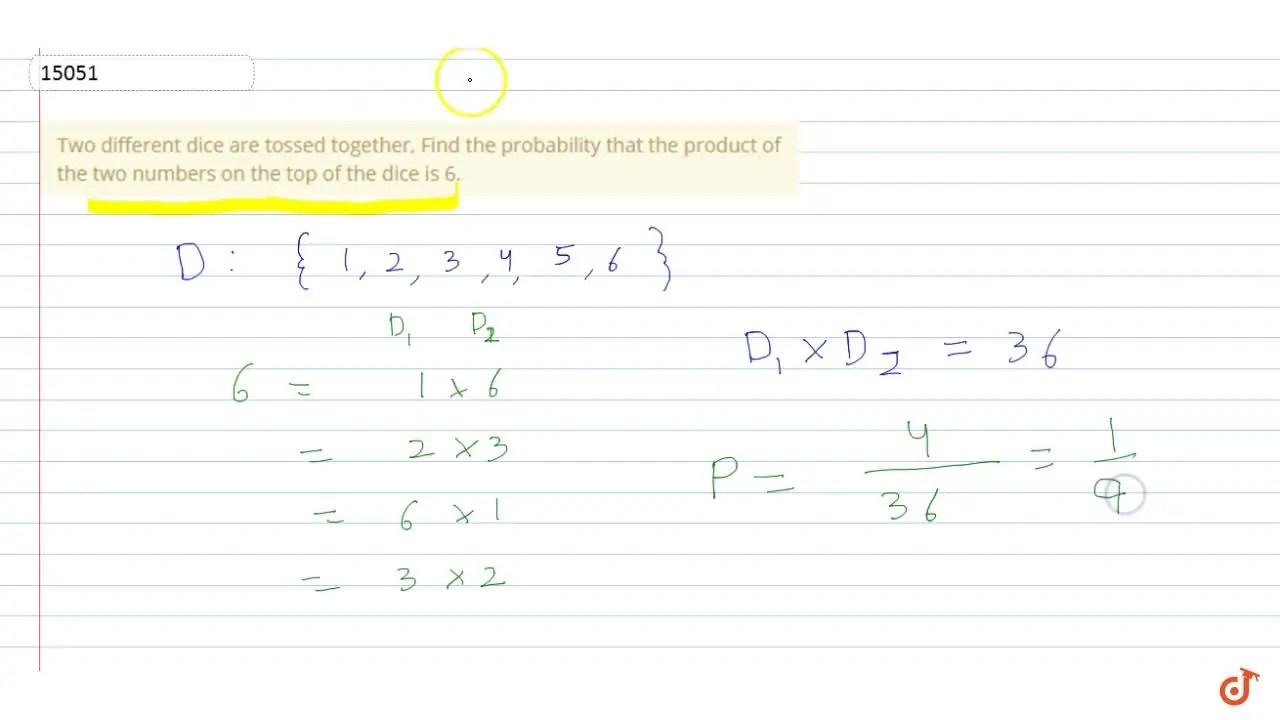 15051
Two different dice are tossed together, Find the probability that the product of
the two numbers on the top of the dice is 6.
D : { 1, 2, 3, 4, 5, 6 }
D₁ D₂
D₁ × D₂ = 36
6 = 1 × 6
= 2 × 3
P = 4/36 = 1/9
= 6 × 1
= 3 × 2